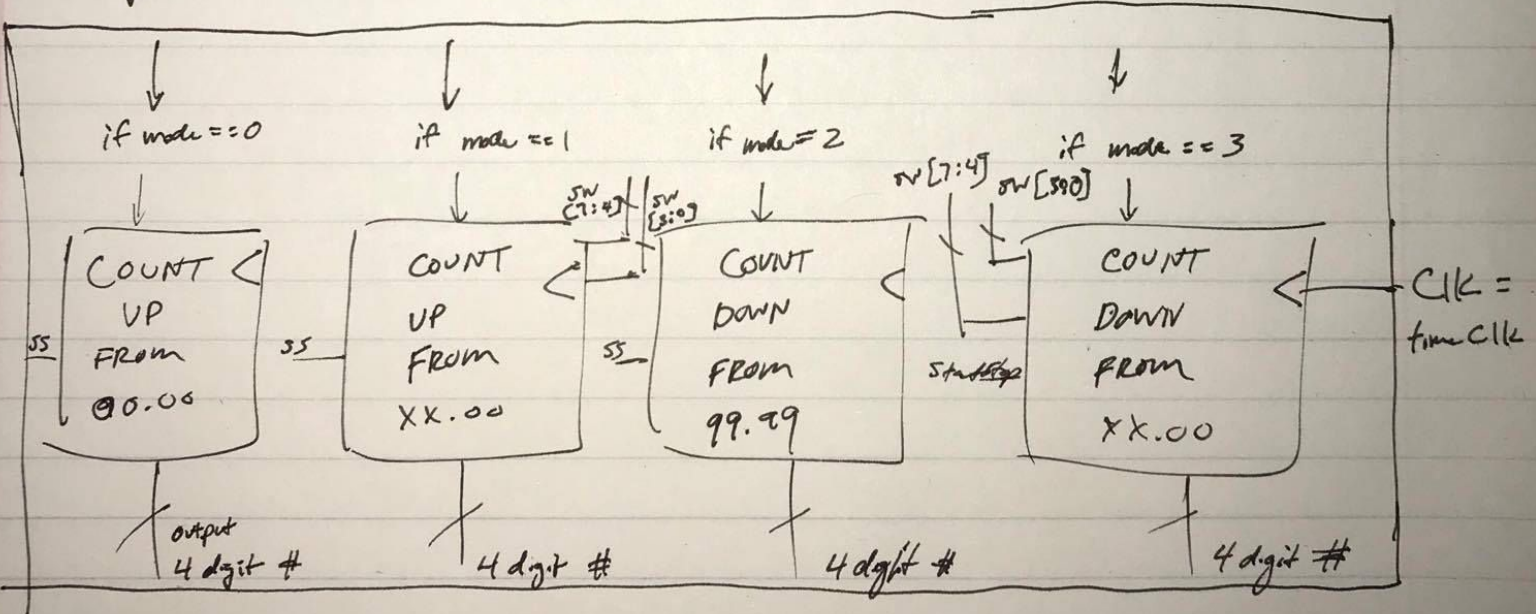 if mode ==0
if mode ==1
if mode = 2
if mode == 3
SW
[7:4]
SW
[3:0]
SW[7:4]
SW[3:0]
COUNT
UP
FROM
00.00
SS
COUNT
UP
FROM
XX.00
SS
COUNT
DOWN
FROM
99.99
SS
COUNT
DOWN
FROM
XX.00
StartStop
Clk =
timeClk
output
4 digit #
4 digit #
4 digit #
4 digit #